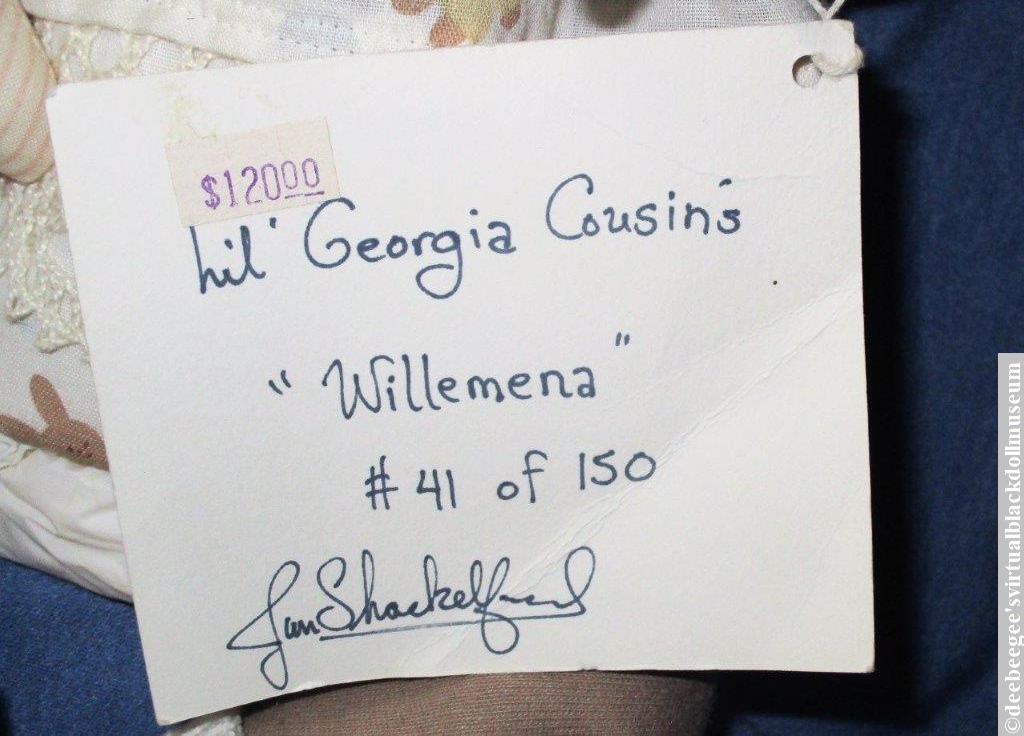 $12000
Lil' Georgia Cousin's
"Willemena"
# 41 of 150
Jan Shackelford
©deebeegee'svirtualblackdollmuseum